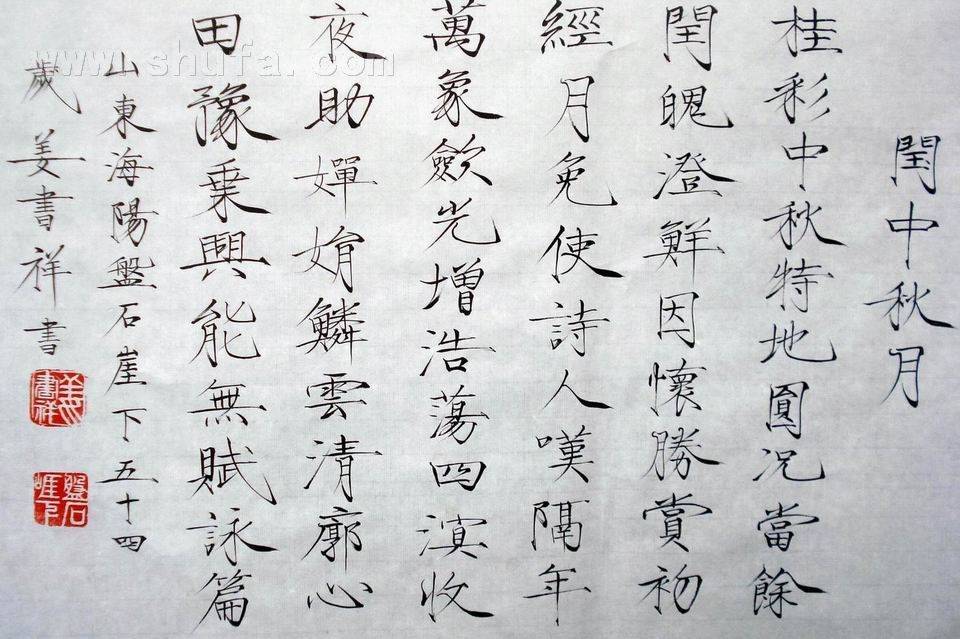 閏中秋月
桂彩中秋特地圓況當餘
閏魄澄鮮因懷勝賞初
經月免使詩人嘆隔年
萬象歛光增浩蕩四溟收
夜助嬋娟鱗雲清廓心
田豫乗興能無賦詠篇
山東海陽盤石崖下五十四
歲姜書祥書
姜書祥
盤石崖下
www.shufa.com